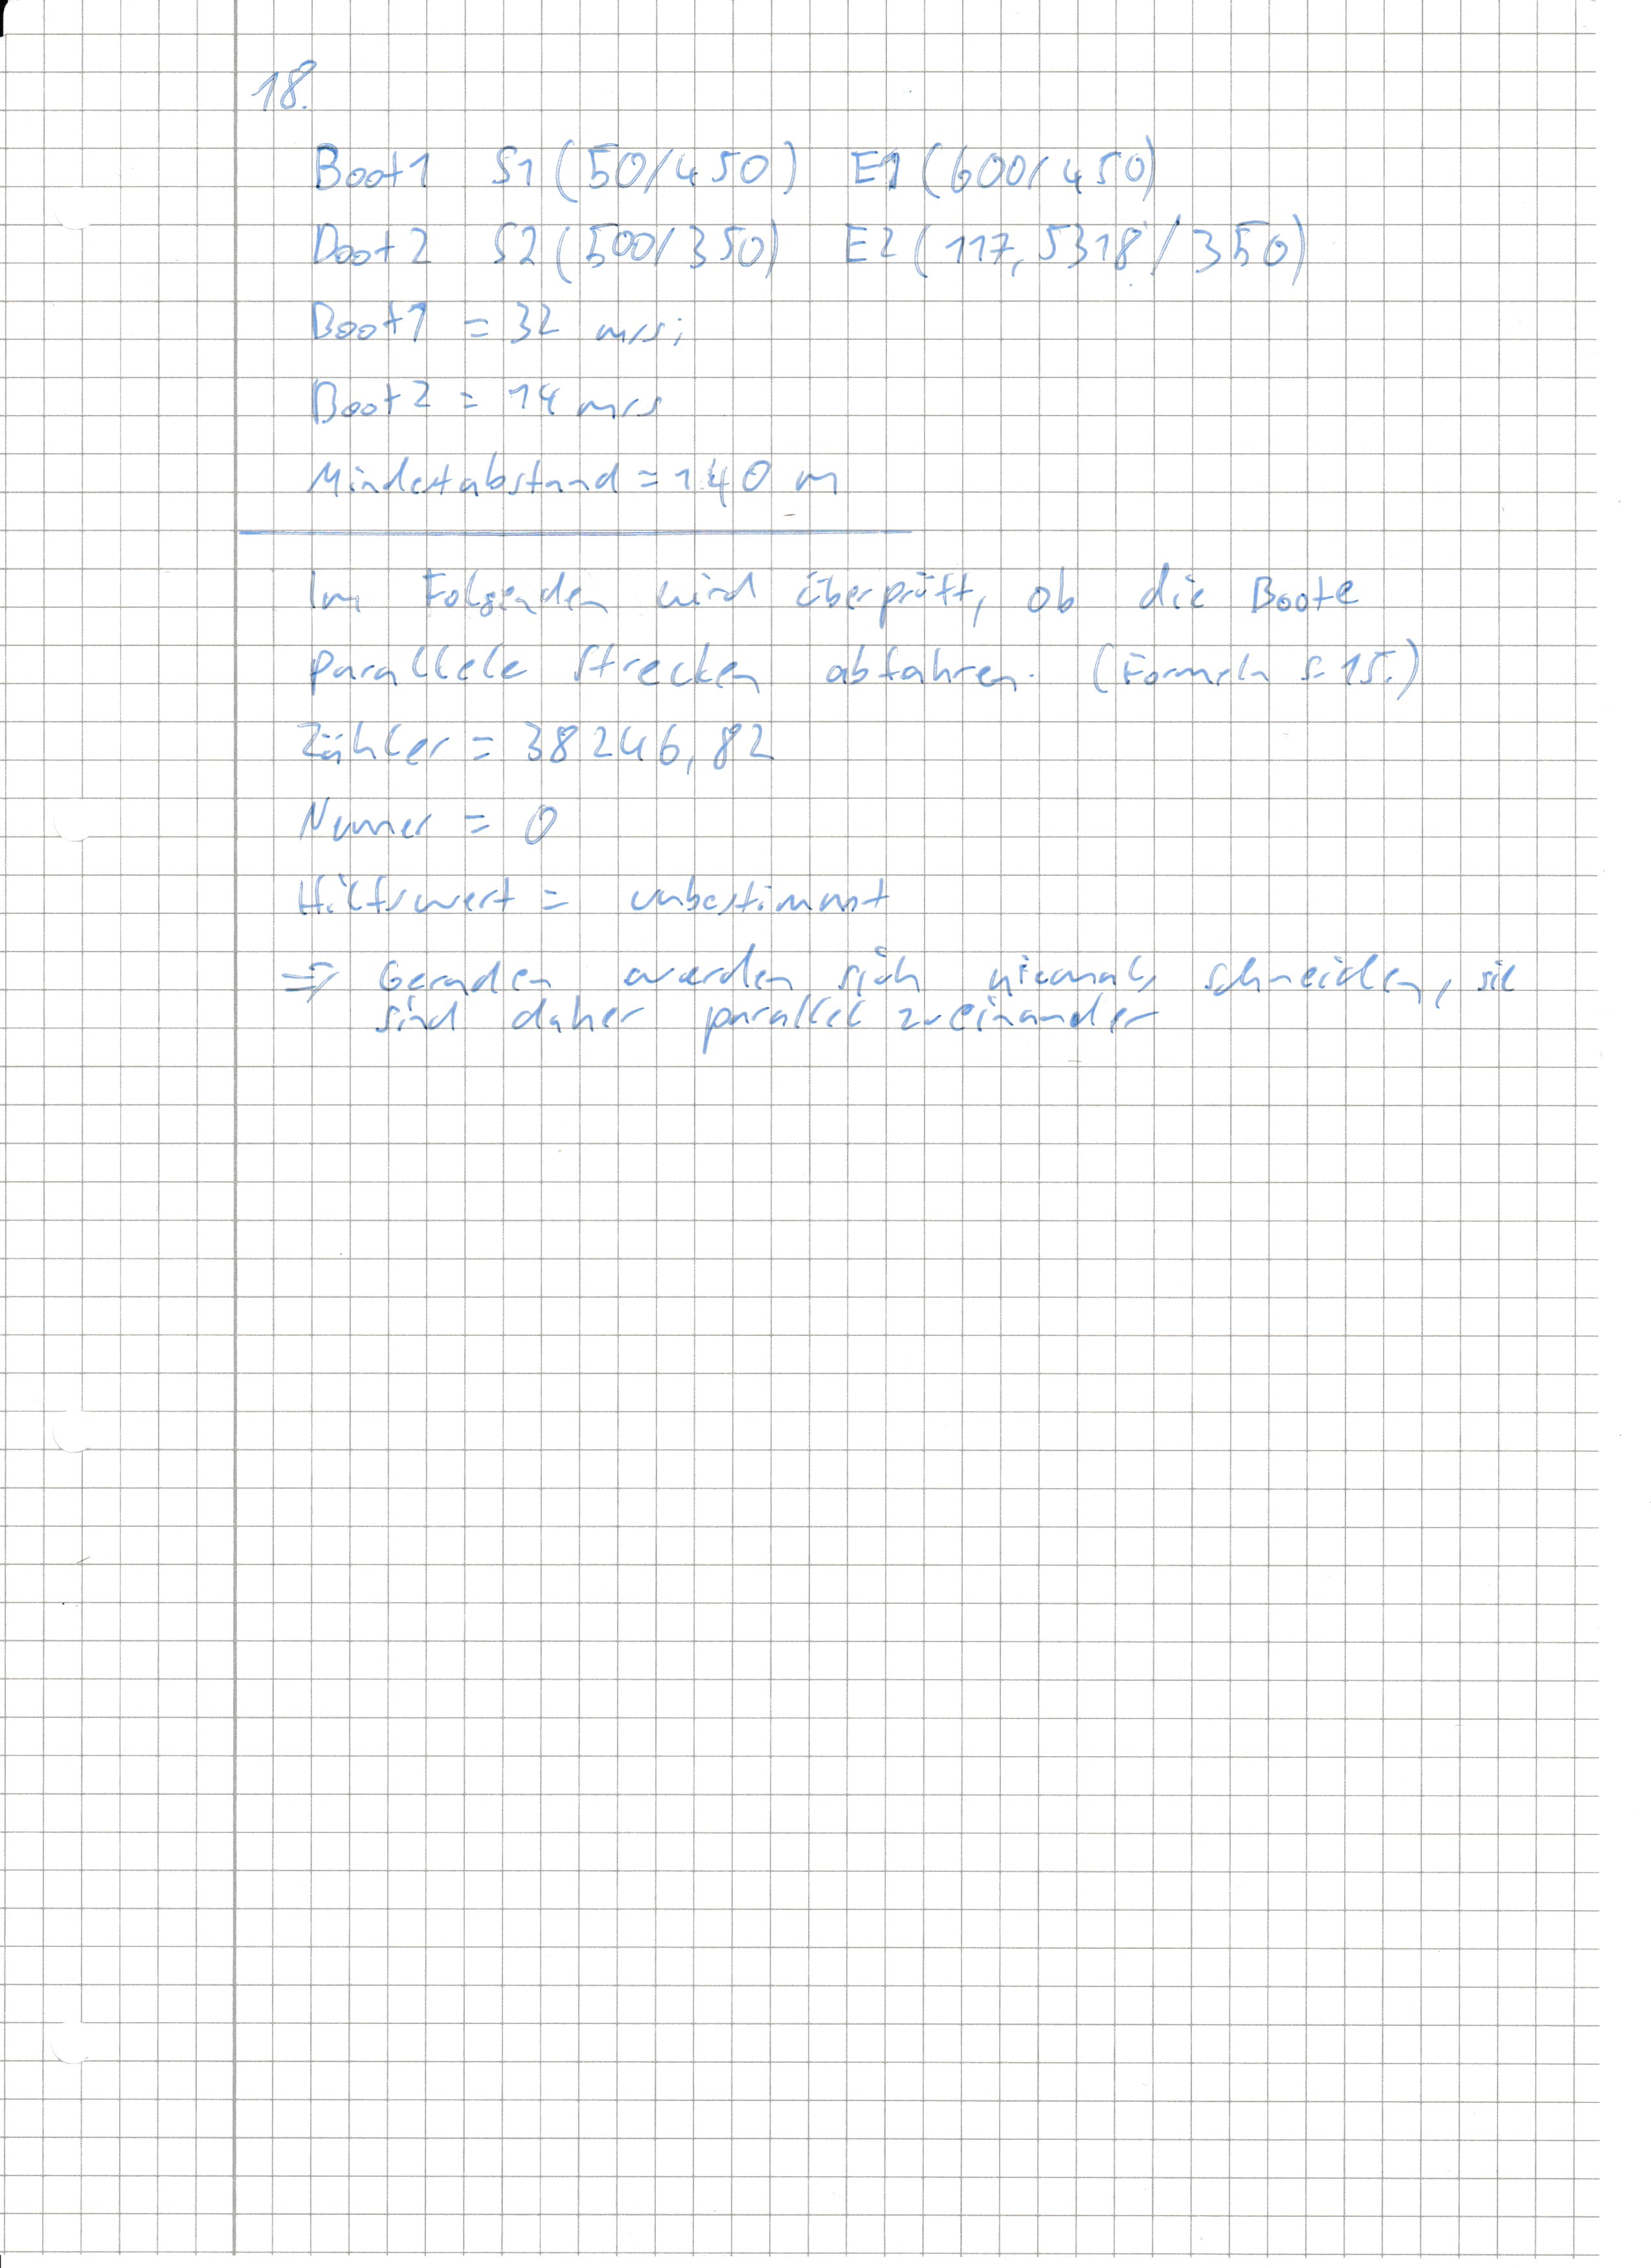 18.
Boot1 S1(50/450) E1(600/450)
Boot2 S2(500/350) E2(117,5318/350)
Boot1 = 32 m/s;
Boot2 = 14 m/s
Mindestabstand = 140 m
Im Folgenden wird überprüft, ob die Boote
parallele Strecken abfahren. (Formeln S. 15.)
Zähler = 38246,82
Nenner = 0
Hilfswert = unbestimmt
=> Geraden werden sich niemals schneiden, sie
sind daher parallel zueinander